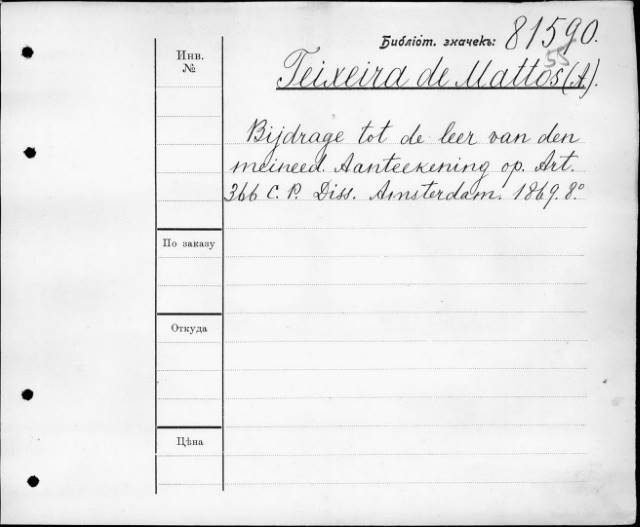 Библіот. значекъ: 81590.
55
Инв.
№
Teixeira de Mattos (A).
Bijdrage tot de leer van den
meineed. Aanteekening op. Art.
366 C. P. Diss. Amsterdam. 1869. 8°
По заказу
Откуда
Цѣна